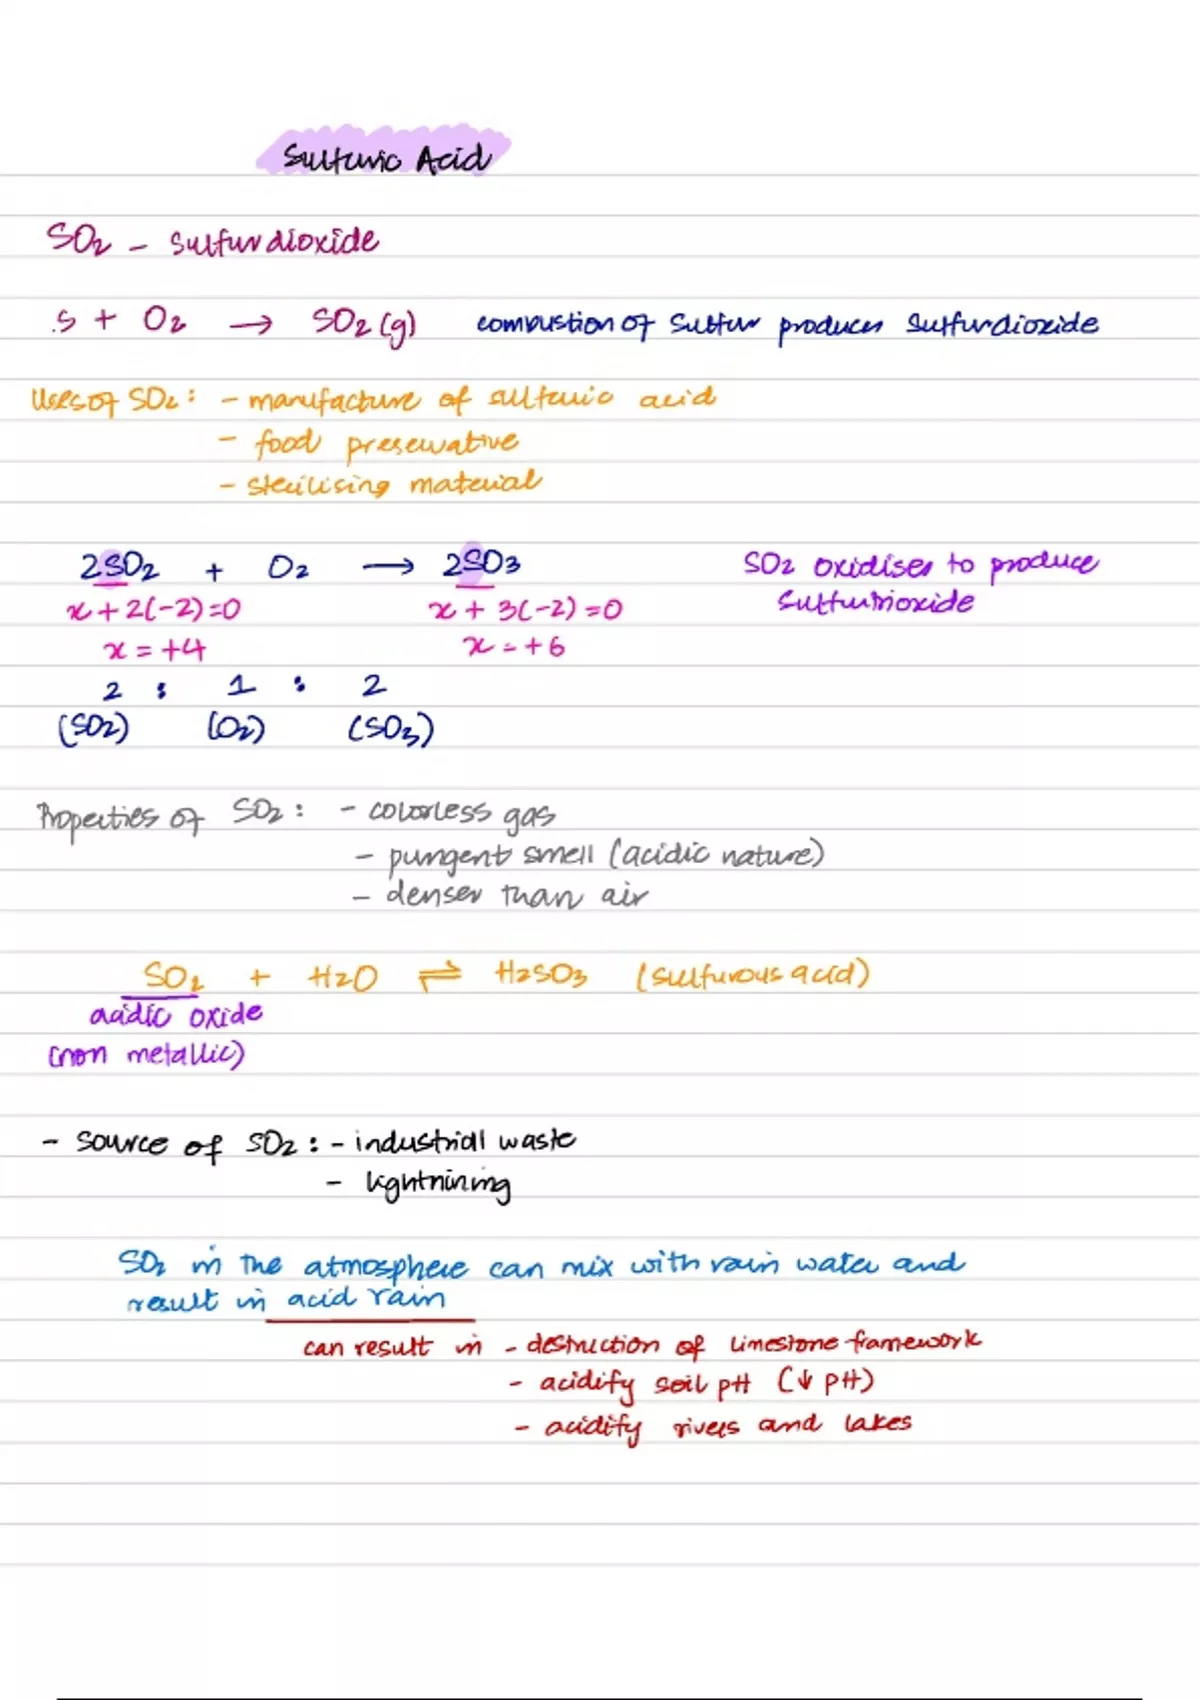 Sulfuric Acid
SO2 - sulfurdioxide
S + O2 → SO2 (g) combustion of sulfur produces sulfurdioxide
Uses of SO2 : - manufacture of sulfuric acid
- food preservative
- sterilising material
2SO2 + O2 → 2SO3 SO2 oxidises to produce
x + 2(-2) = 0 x + 3(-2) = 0 sulfurtrioxide
x = +4 x = +6
2 : 1 : 2
(SO2) (O2) (SO3)
Properties of SO2 : - colorless gas
- pungent smell (acidic nature)
- denser than air
SO2 + H2O ⇌ H2SO3 (sulfurous acid)
acidic oxide
(non metallic)
- source of SO2 : - industrial waste
- lightnining
SO2 in the atmosphere can mix with rain water and
result in acid rain
can result in - destruction of limestone framework
- acidify soil pH (↓ pH)
- acidify rivers and lakes